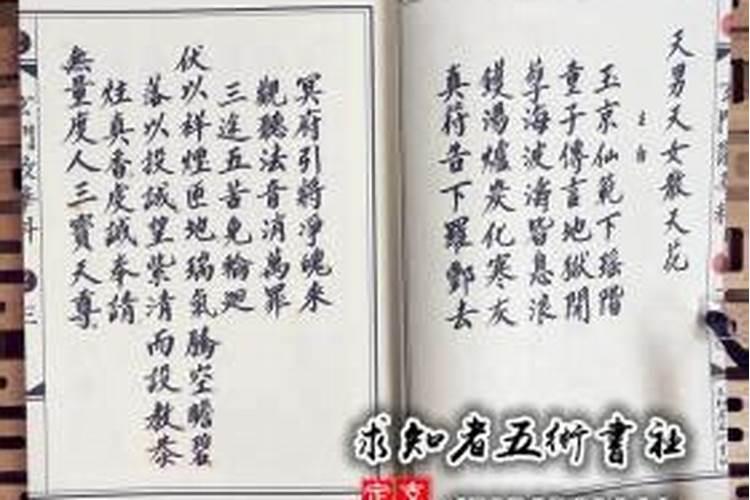 天男天女散天花
玉京仙範下瑶階
童子傳言地獄開
孽海波濤皆息浪
鑊湯爐炭化寒灰
真符告下羅酆去
冥府引將凈魄來
觀聽法音消萬罪
三途五苦免輪廻
伏以祥煙匝地瑞氣騰空瞻碧
落以投誠望紫清而設教恭
炷真香虔誠奉請
無量度人三寳天尊
求知者五術書社